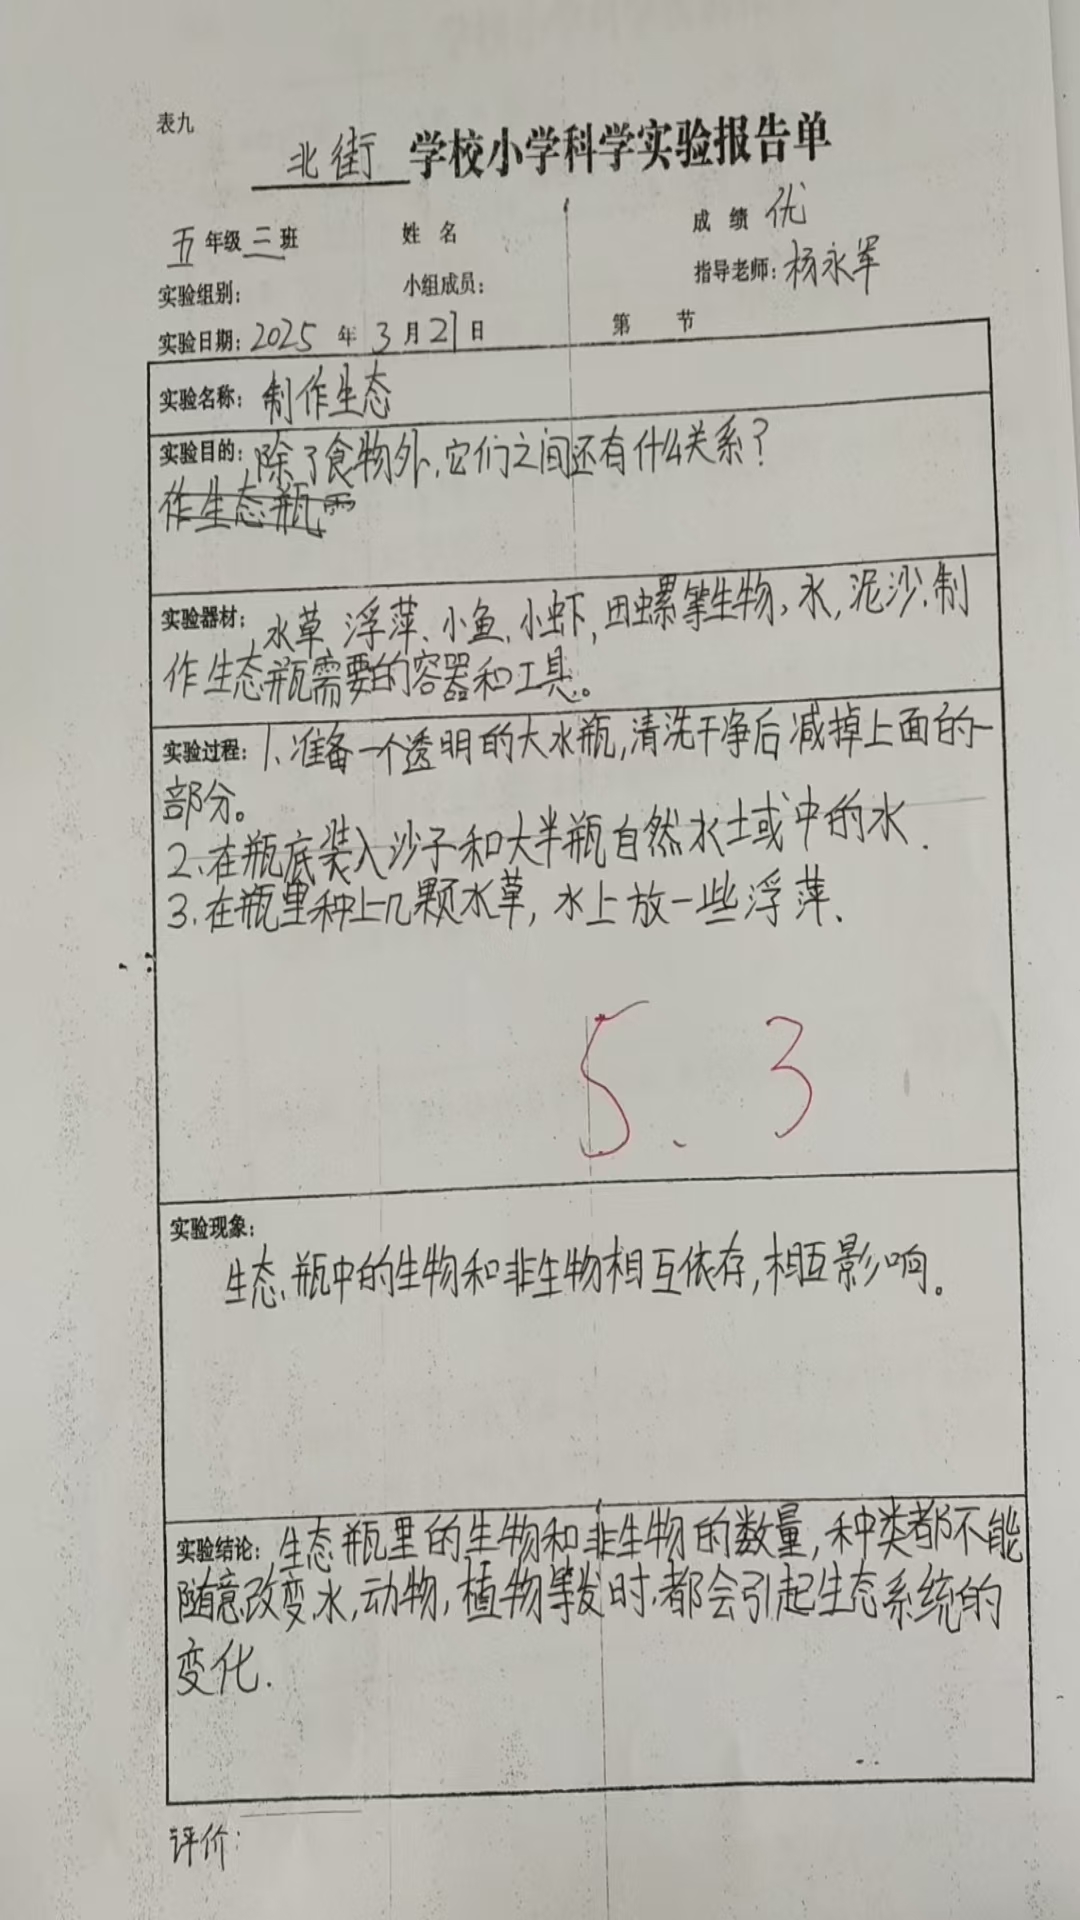 表九
北街 学校小学科学实验报告单
五年级三班 姓 名 成 绩 优
实验组别: 小组成员: 指导老师: 杨永军
实验日期: 2025 年 3 月 21 日 第 节
实验名称: 制作生态
实验目的: 除了食物外,它们之间还有什么关系?
作生态瓶需
实验器材: 水草、浮萍、小鱼、小虾,田螺等生物,水,泥沙,制
作生态瓶需要的容器和工具。
实验过程: 1、准备一个透明的大水瓶,清洗干净后减掉上面的一
部分。
2、在瓶底装入沙子和大半瓶自然水土或中的水.
3.在瓶里种上几颗水草,水上放一些浮萍、
5.3
实验现象:
生态瓶中的生物和非生物相互依存,相互影响。
实验结论: 生态瓶里的生物和非生物的数量,种类都不能
随意改变,水,动物,植物等发时,都会引起生态系统的
变化.
评价: